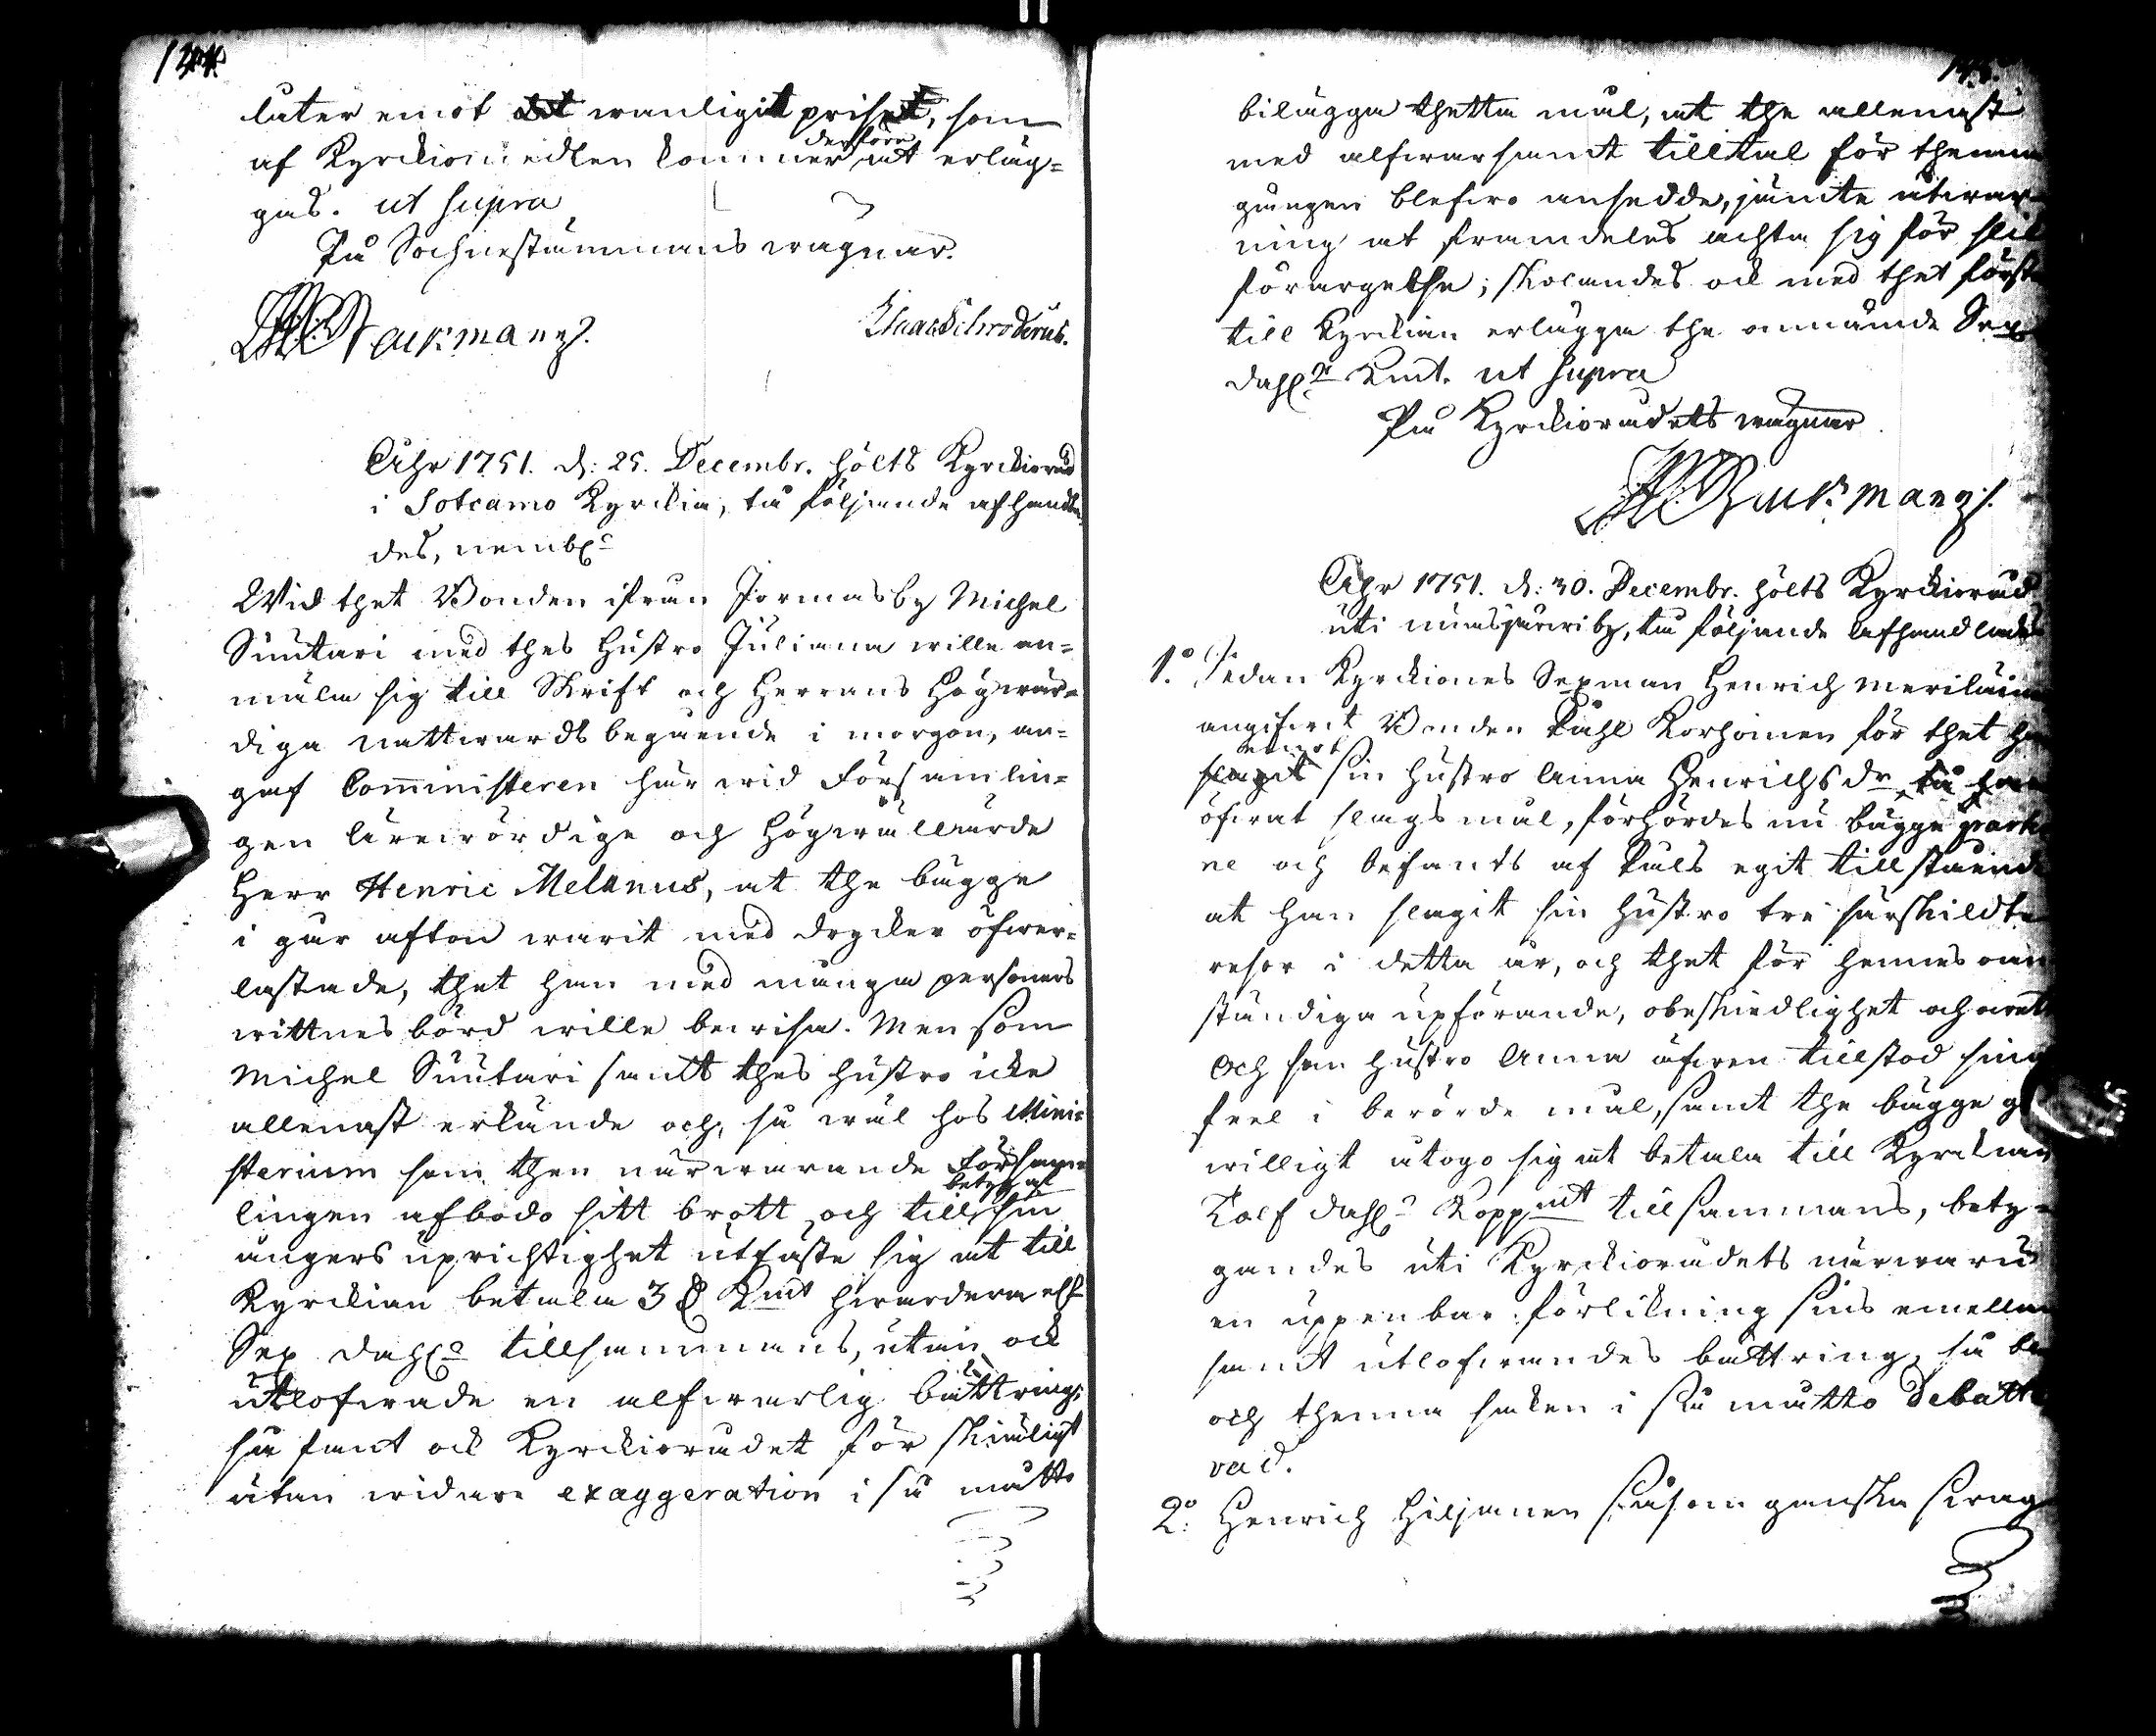 låter emot det wanligit priset, som
af Kyrckiomedlen kommer derföre at erläg=
gas. ut supra
På Sochnestämmans wägnar.
Isaac Schroderus.
Åhr 1751. d: 25. Decembr. hölts Kyrckioråd
i Sotcamo Kyrckia, tå följande afhandla
des, nembl:
Wid thet Bonden ifrån Jormasby Michel
Suutari med thes hustro Juliana wille an=
mäla sig till Skrift och Herrans Högwär=
diga Nattwards begående i morgon, an=
gaf Comministeren här wid Försam̃lin=
gen Ärewördige och Högwällärde
Herr Henric Melanus, at the bägge
i går afton warit med drycker öfwer=
lastade, thet han med många personers
wittnesbörd wille bewisa. Men som
Michel Suutari samt thes hustro icke
allenast erkände och, så wäl hos Mini=
sterium som then närwarande Försam=
lingen afbodo sitt brott, och till betygh af sin
ångers uprichtighet utfäste sig at till
Kyrckian betala 3 D Kmt hwardera eller
Sex dahl:r tillsammans, utan ock
utlofwade en alfwarlig bättring;
så fant ock Kyrckiorådet för skiäligt
utan widare exaggeration i så måtto
bilägga thetta mål, at the allenast
med alfwarsamt tilltal för thenna
gången blefwo ansedde, jämte utwar=
ning at framdeles achta sig för slik
förargelse; skolandes ock med thet första
till Kyrckian erlägga the omnämde Sex
dahl:r Kmt. ut supra
På Kyrckiorådets wägnar
Åhr 1751. d: 30. Decembr. hölts Kyrckioråd
uti Nuasjärwiby, tå följande afhandlades
1.o Sedan Kyrckiones Sexman Henrich Meriläinen
angifwit Bonden Påhl Korhoinen för thet han
emot sin hustro Anna Henrichsdr
öfwat slagsmål, förhördes nu bägge parter
ne och befants af Påls egit tillstående
at han slagit sin hustro tre särskildta
resor i detta år, och thet för hennes oan
ständiga upförande, obeskiedlighet och
Och som hustro Anna äfwen tillstod sina
feel i berörde mål, samt the bägge
willigt utogo sig at betala till Kyrckian
Tolf dahl:r Koppmt tillsammans, bety=
gandes uti Kyrckiorådets närwaru
en uppenbar förlikning sins emellan
samt utlofwandes bättring, så ble
och thenna saken i så måtto debatte
rad.
2:o Henrich Hiljanen såsom ganska swag